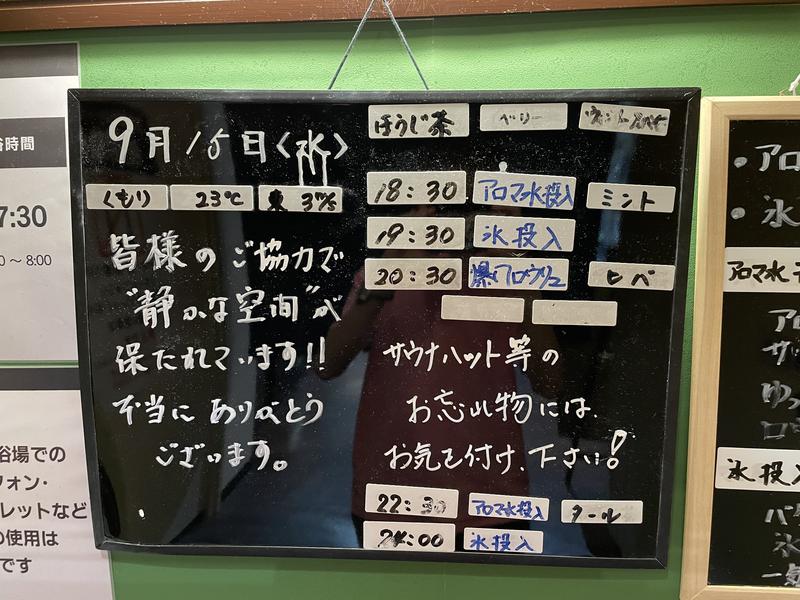 9月15日〈水〉
くもり 23℃ 東 3m/s
皆様のご協力で
"静かな空間"が
保たれています!!
本当に ありがとう
ございます。
ほうじ茶 ベリー
18:30 アロマ水投入 ミント
19:30 氷投入
20:30 爆アロウリュ ヒバ
サウナハット等の
お忘れ物には、
お気を付け、下さい!
22:30 アロマ水投入 タール
24:00 氷投入
時間
7:30
0～8:00
浴場での
フォン・
レットなど
の使用は
です
・アロ
・氷
アロマ水
アロ
サ
ゆっ
ロ
氷投入
バ
氷
一気